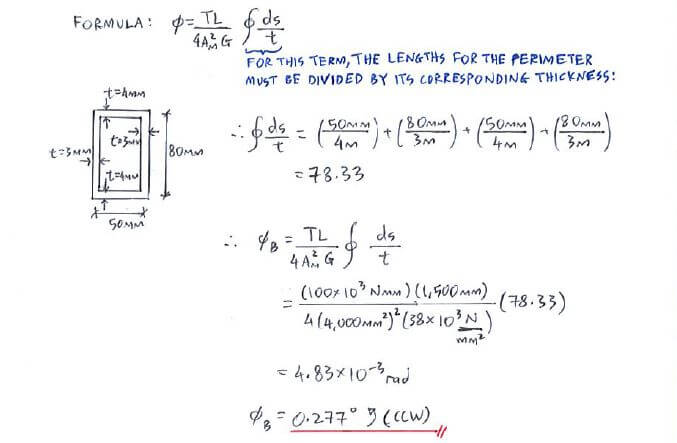 FORMULA: φ = TL/4A²ₘG ∮ ds/t
FOR THIS TERM, THE LENGTHS FOR THE PERIMETER
MUST BE DIVIDED BY ITS CORRESPONDING THICKNESS:
t=4MM
t=3MM
t=3MM
t=4MM
80MM
50MM
∴ ∮ ds/t = (50MM/4M) + (80MM/3M) + (50MM/4M) + (80MM/3M)
= 78.33
∴ φ_B = TL/4A²ₘG ∮ ds/t
= (100×10³ NMM)(1,500MM)/4(4,000MM²)²(38×10³ N/MM²) (78.33)
= 4.83×10⁻³ rad
φ_B = 0.277° (CCW)